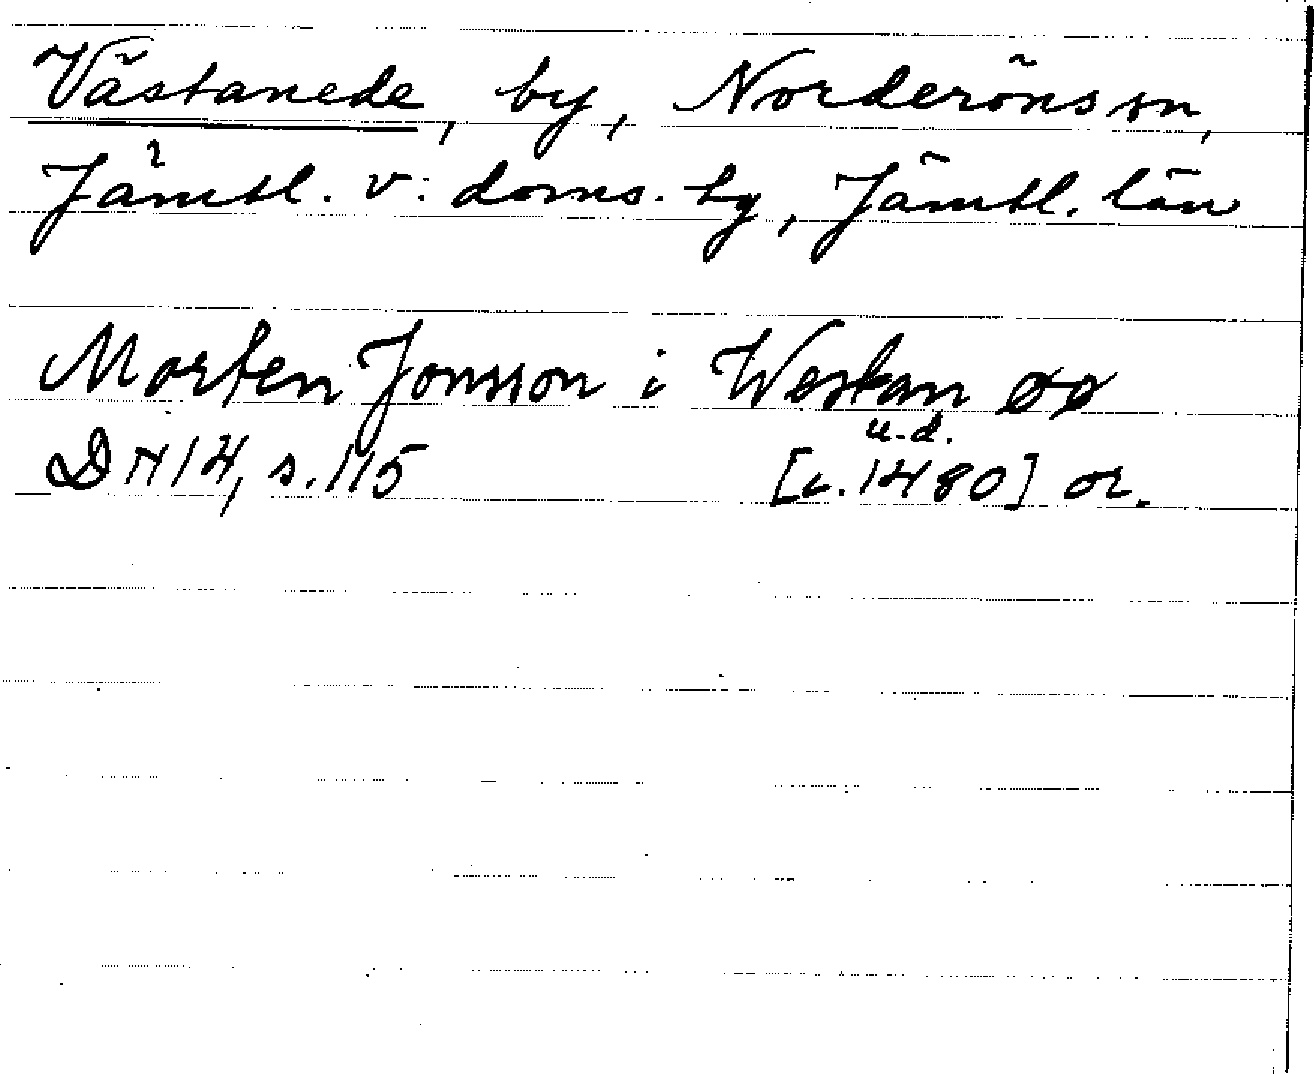 Västanede, by, Norderöns sn,
Jämtl. v. doms. hg, Jämtl. län
Morten Jonsson i Westan øø
u.d.
DN 14, s. 115 [c. 1480] or.